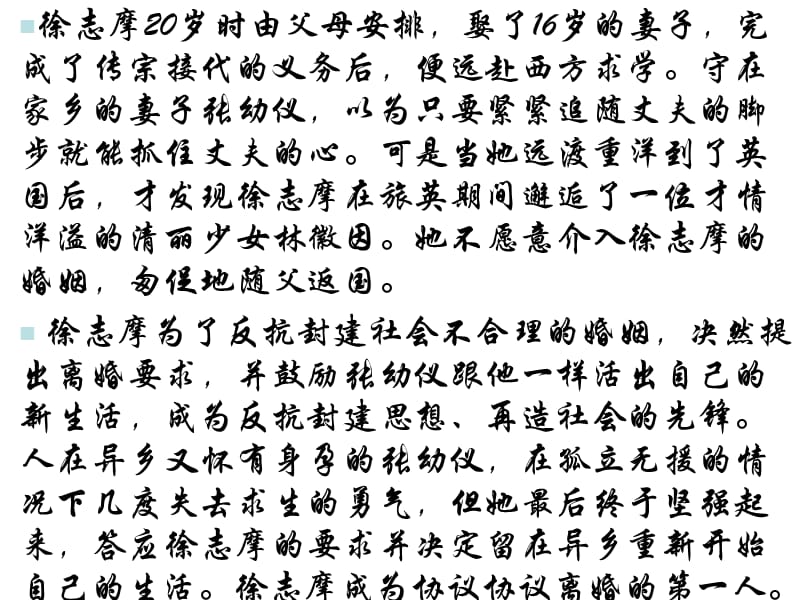 徐志摩20岁时由父母安排，娶了16岁的妻子，完
成了传宗接代的义务后，便远赴西方求学。守在
家乡的妻子张幼仪，以为只要紧紧追随丈夫的脚
步就能抓住丈夫的心。可是当她远渡重洋到了英
国后，才发现徐志摩在旅英期间邂逅了一位才情
洋溢的清丽少女林徽因。她不愿意介入徐志摩的
婚姻，匆促地随父返国。
徐志摩为了反抗封建社会不合理的婚姻，决然提
出离婚要求，并鼓励张幼仪跟他一样活出自己的
新生活，成为反抗封建思想、再造社会的先锋。
人在异乡又怀有身孕的张幼仪，在孤立无援的情
况下几度失去求生的勇气，但她最后终于坚强起
来，答应徐志摩的要求并决定留在异乡重新开始
自己的生活。徐志摩成为协议协议离婚的第一人。